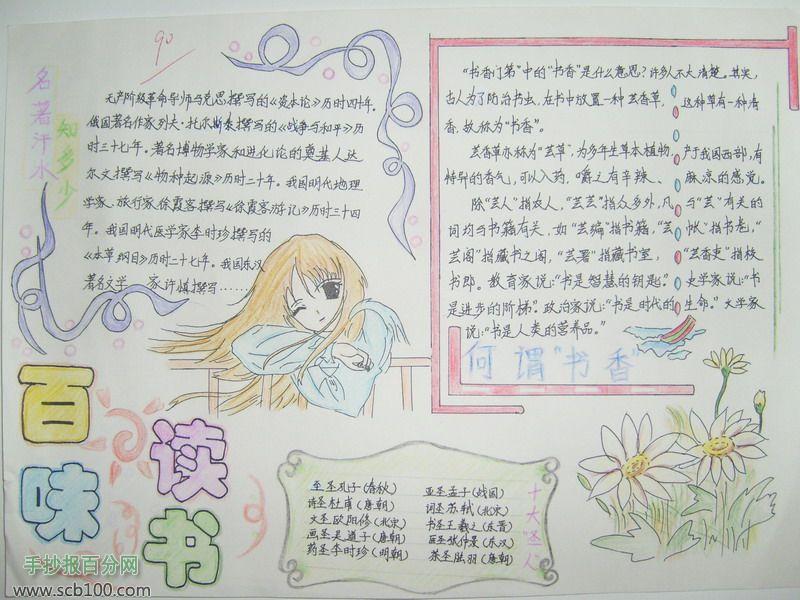 90
名著汗水
知多少
无产阶级革命导师马克思撰写的《资本论》历时四十年。
俄国著名作家列夫·托尔斯泰撰写的《战争与和平》历
时三十七年。著名博物学家和进化论的奠基人达
尔文撰写《物种起源》历时二十年。我国明代地理
学家、旅行家徐霞客撰写《徐霞客游记》历时三十四
年。我国明代医学家李时珍撰写的
《本草纲目》历时二十七年。我国东汉
著名文学 家许慎撰写……
"书香门第"中的"书香"是什么意思?许多人不大清楚。其实,
古人为了防治书虫,在书中放置一种芸香草, 这种草有一种清
香,故称为"书香"。
芸香草亦称为"芸草",为多年生草本植物, 产于我国西部,有
特异的香气,可以入药,嚼之有辛辣、 麻凉的感觉。
除"芸人"指农人,"芸芸"指众多外,凡 与"芸"有关的
词均与书籍有关,如"芸编"指书籍,"芸 帙"指书卷,"
芸阁"指藏书之阁,"芸署"指藏书室, "芸香吏"指校
书郎。教育家说:"书是智慧的钥匙。" 史学家说:"书
是进步的阶梯"。政治家说:"书是时代的 生命。"文学家
说:"书是人类的营养品。"
何谓"书香"
百味
读书
至圣孔子(春秋) 亚圣孟子(战国)
诗圣杜甫(唐朝) 词圣苏轼(北宋)
文圣欧阳修(北宋) 书圣王羲之(东晋)
画圣吴道子(唐朝) 医圣张仲景(东汉)
药圣李时珍(明朝) 茶圣陆羽(唐朝)
十大"圣人"
手抄报百分网
www.scb100.com